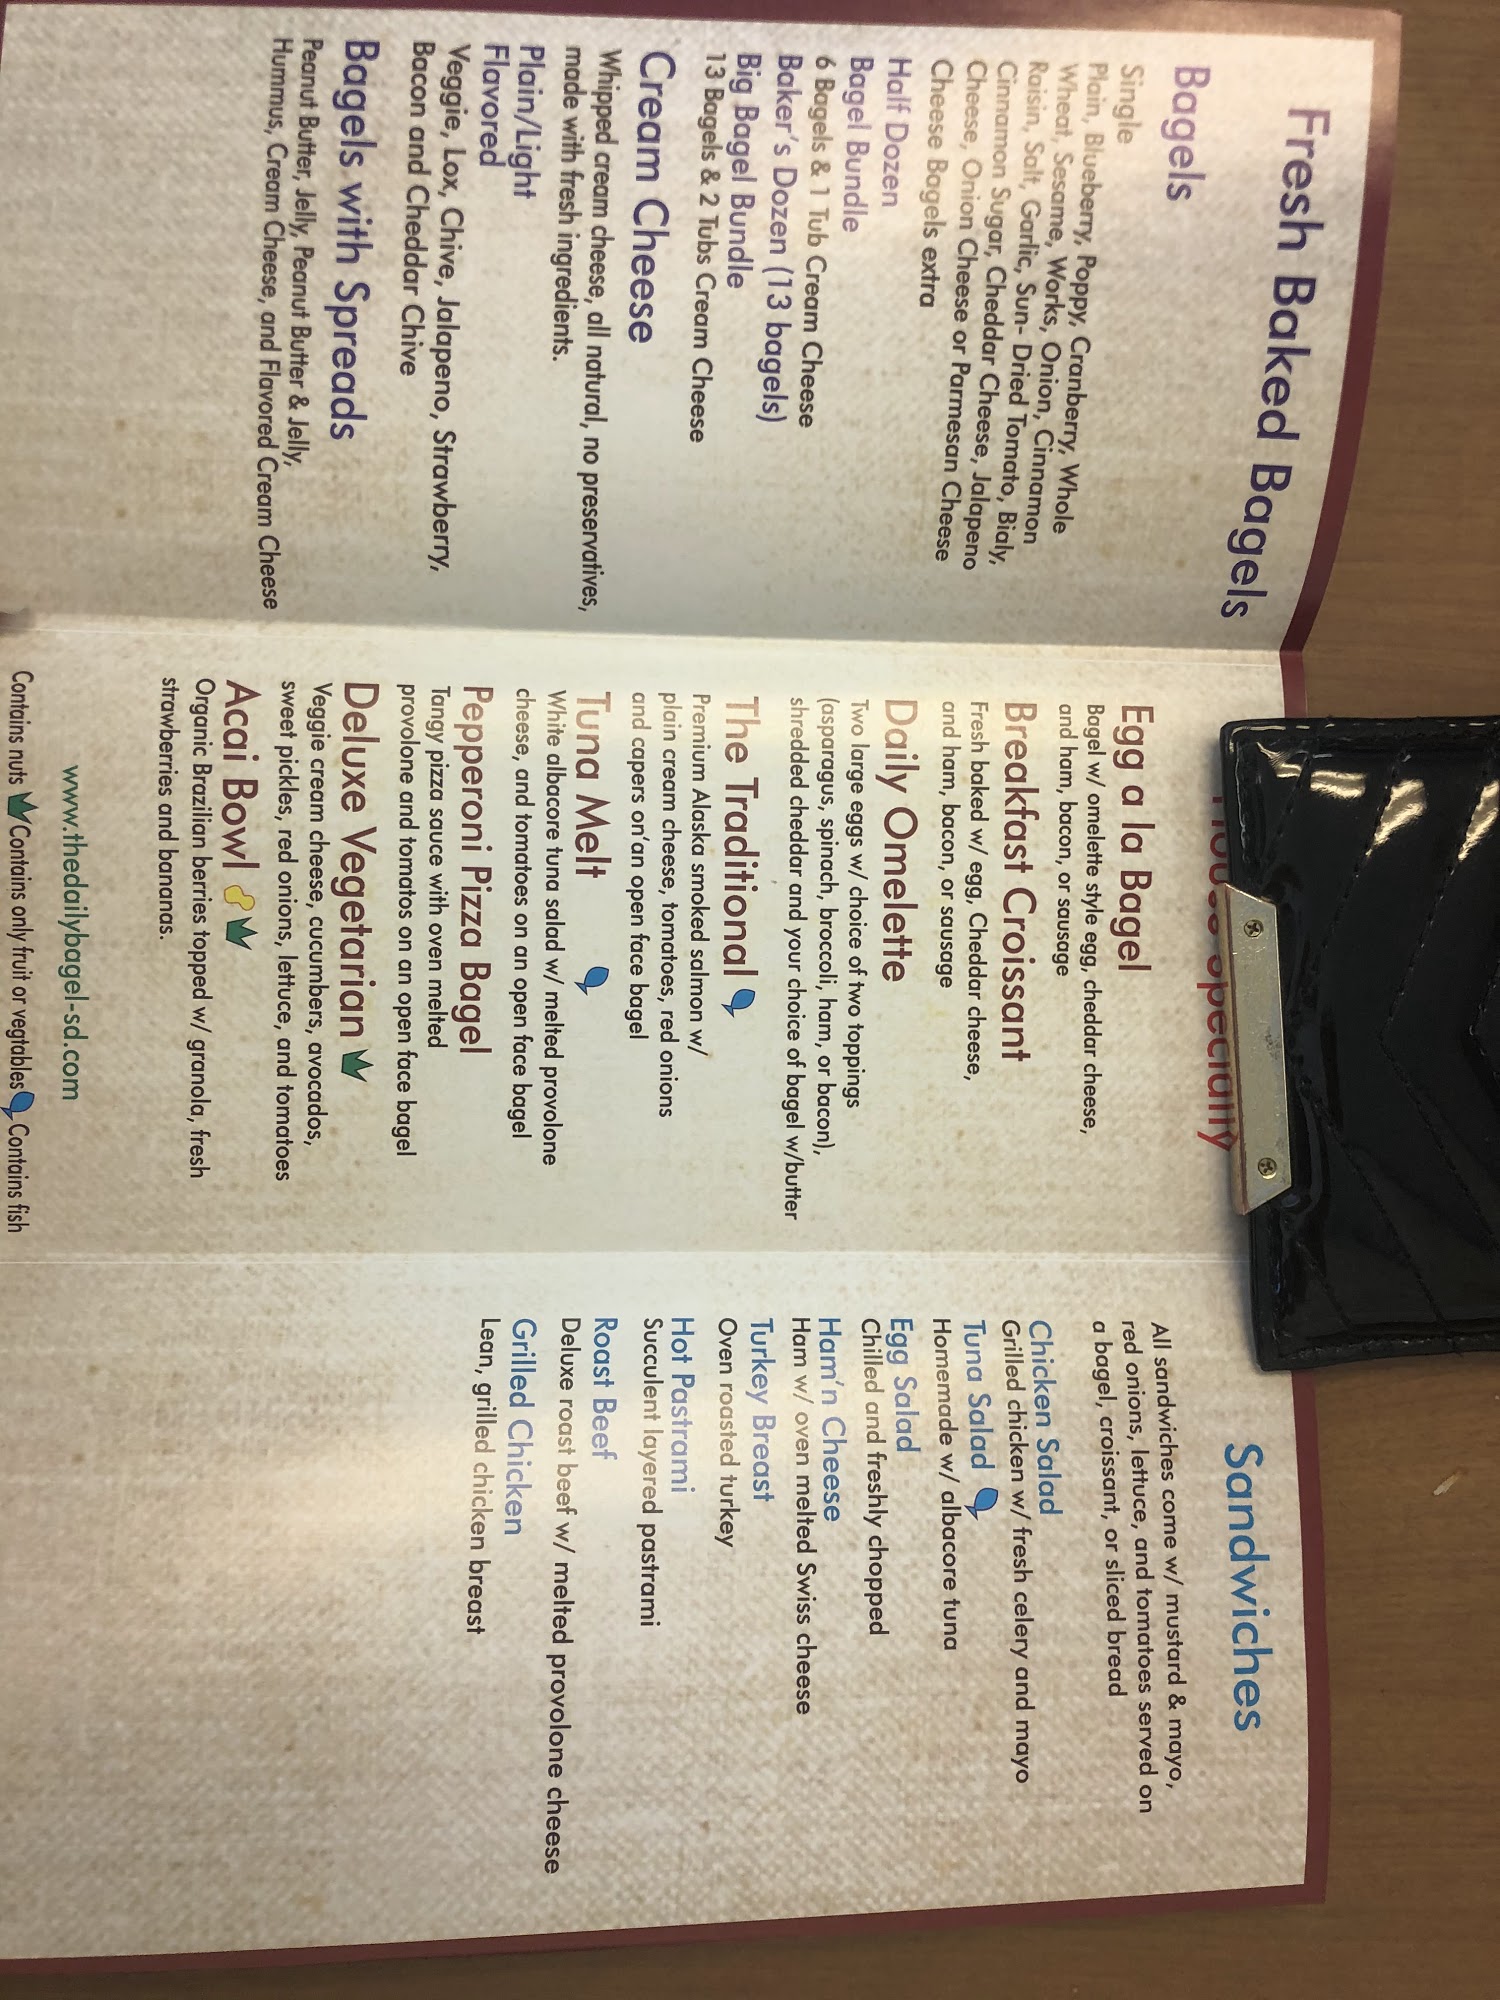 Fresh Baked Bagels
Bagels
Single
Plain, Blueberry, Poppy, Cranberry, Whole
Wheat, Sesame, Works, Onion, Cinnamon
Raisin, Salt, Garlic, Sun- Dried Tomato, Bialy,
Cinnamon Sugar, Cheddar Cheese, Jalapeno
Cheese, Onion Cheese or Parmesan Cheese
Cheese Bagels extra
Half Dozen
Bagel Bundle
6 Bagels & 1 Tub Cream Cheese
Baker's Dozen (13 bagels)
Big Bagel Bundle
13 Bagels & 2 Tubs Cream Cheese
Cream Cheese
Whipped cream cheese, all natural, no preservatives,
made with fresh ingredients.
Plain/Light
Flavored
Veggie, Lox, Chive, Jalapeno, Strawberry,
Bacon and Cheddar Chive
Bagels with Spreads
Peanut Butter, Jelly, Peanut Butter & Jelly,
Hummus, Cream Cheese, and Flavored Cream Cheese
Egg a la Bagel
Bagel w/ omelette style egg, cheddar cheese,
and ham, bacon, or sausage
Breakfast Croissant
Fresh baked w/ egg, Cheddar cheese,
and ham, bacon, or sausage
Daily Omelette
Two large eggs w/ choice of two toppings
(asparagus, spinach, broccoli, ham, or bacon),
shredded cheddar and your choice of bagel w/butter
The Traditional
Premium Alaska smoked salmon w/
plain cream cheese, tomatoes, red onions
and capers on'an open face bagel
Tuna Melt
White albacore tuna salad w/ melted provolone
cheese, and tomatoes on an open face bagel
Pepperoni Pizza Bagel
Tangy pizza sauce with oven melted
provolone and tomatos on an open face bagel
Deluxe Vegetarian
Veggie cream cheese, cucumbers, avocados,
sweet pickles, red onions, lettuce, and tomatoes
Acai Bowl
Organic Brazilian berries topped w/ granola, fresh
strawberries and bananas.
www.thedailybagel-sd.com
Contains nuts Contains only fruit or vegtables Contains fish
Sandwiches
All sandwiches come w/ mustard & mayo,
red onions, lettuce, and tomatoes served on
a bagel, croissant, or sliced bread
Chicken Salad
Grilled chicken w/ fresh celery and mayo
Tuna Salad
Homemade w/ albacore tuna
Egg Salad
Chilled and freshly chopped
Ham'n Cheese
Ham w/ oven melted Swiss cheese
Turkey Breast
Oven roasted turkey
Hot Pastrami
Succulent layered pastrami
Roast Beef
Deluxe roast beef w/ melted provolone cheese
Grilled Chicken
Lean, grilled chicken breast